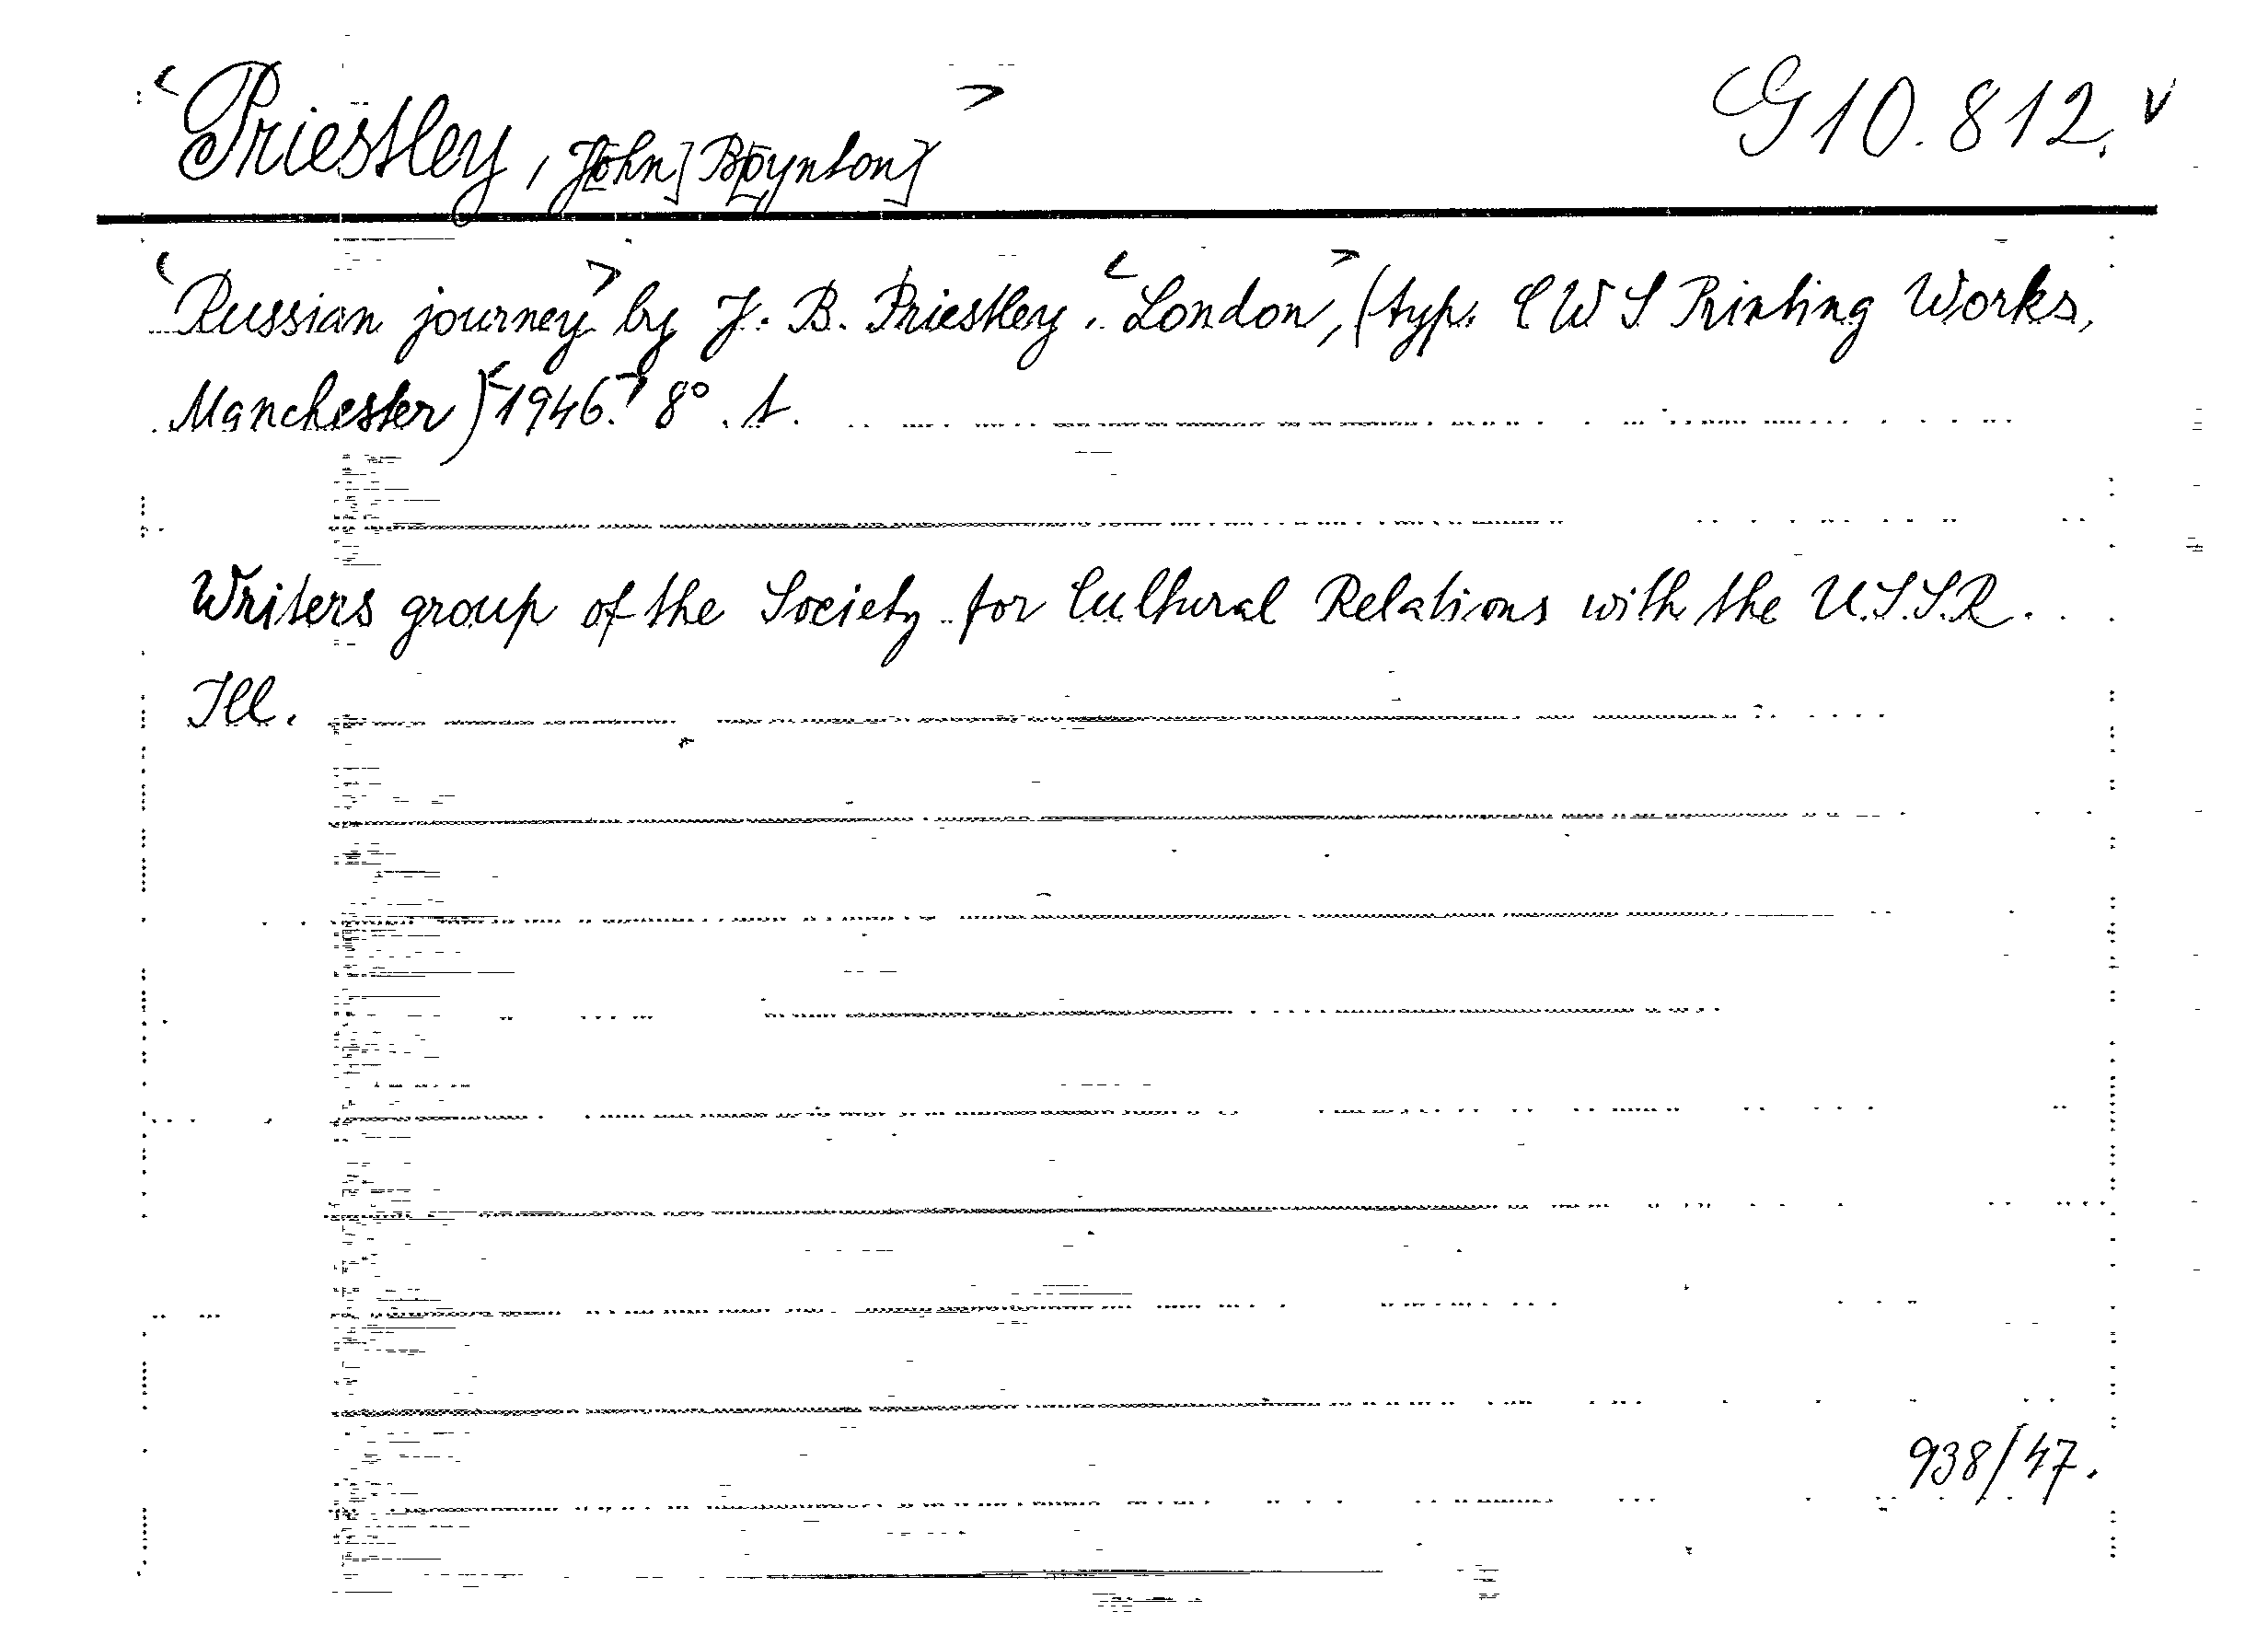 ‹Priestley, J[ohn] B[oynton]› G10.812. v
‹Russian journey› by J. B. Priestley. ‹London›, (typ. CWS Printing Works,
Manchester) ‹1946.› 8° . t.
Writers group of the Society for Cultural Relations with the U.S.S.R.
Ill.
938/47.